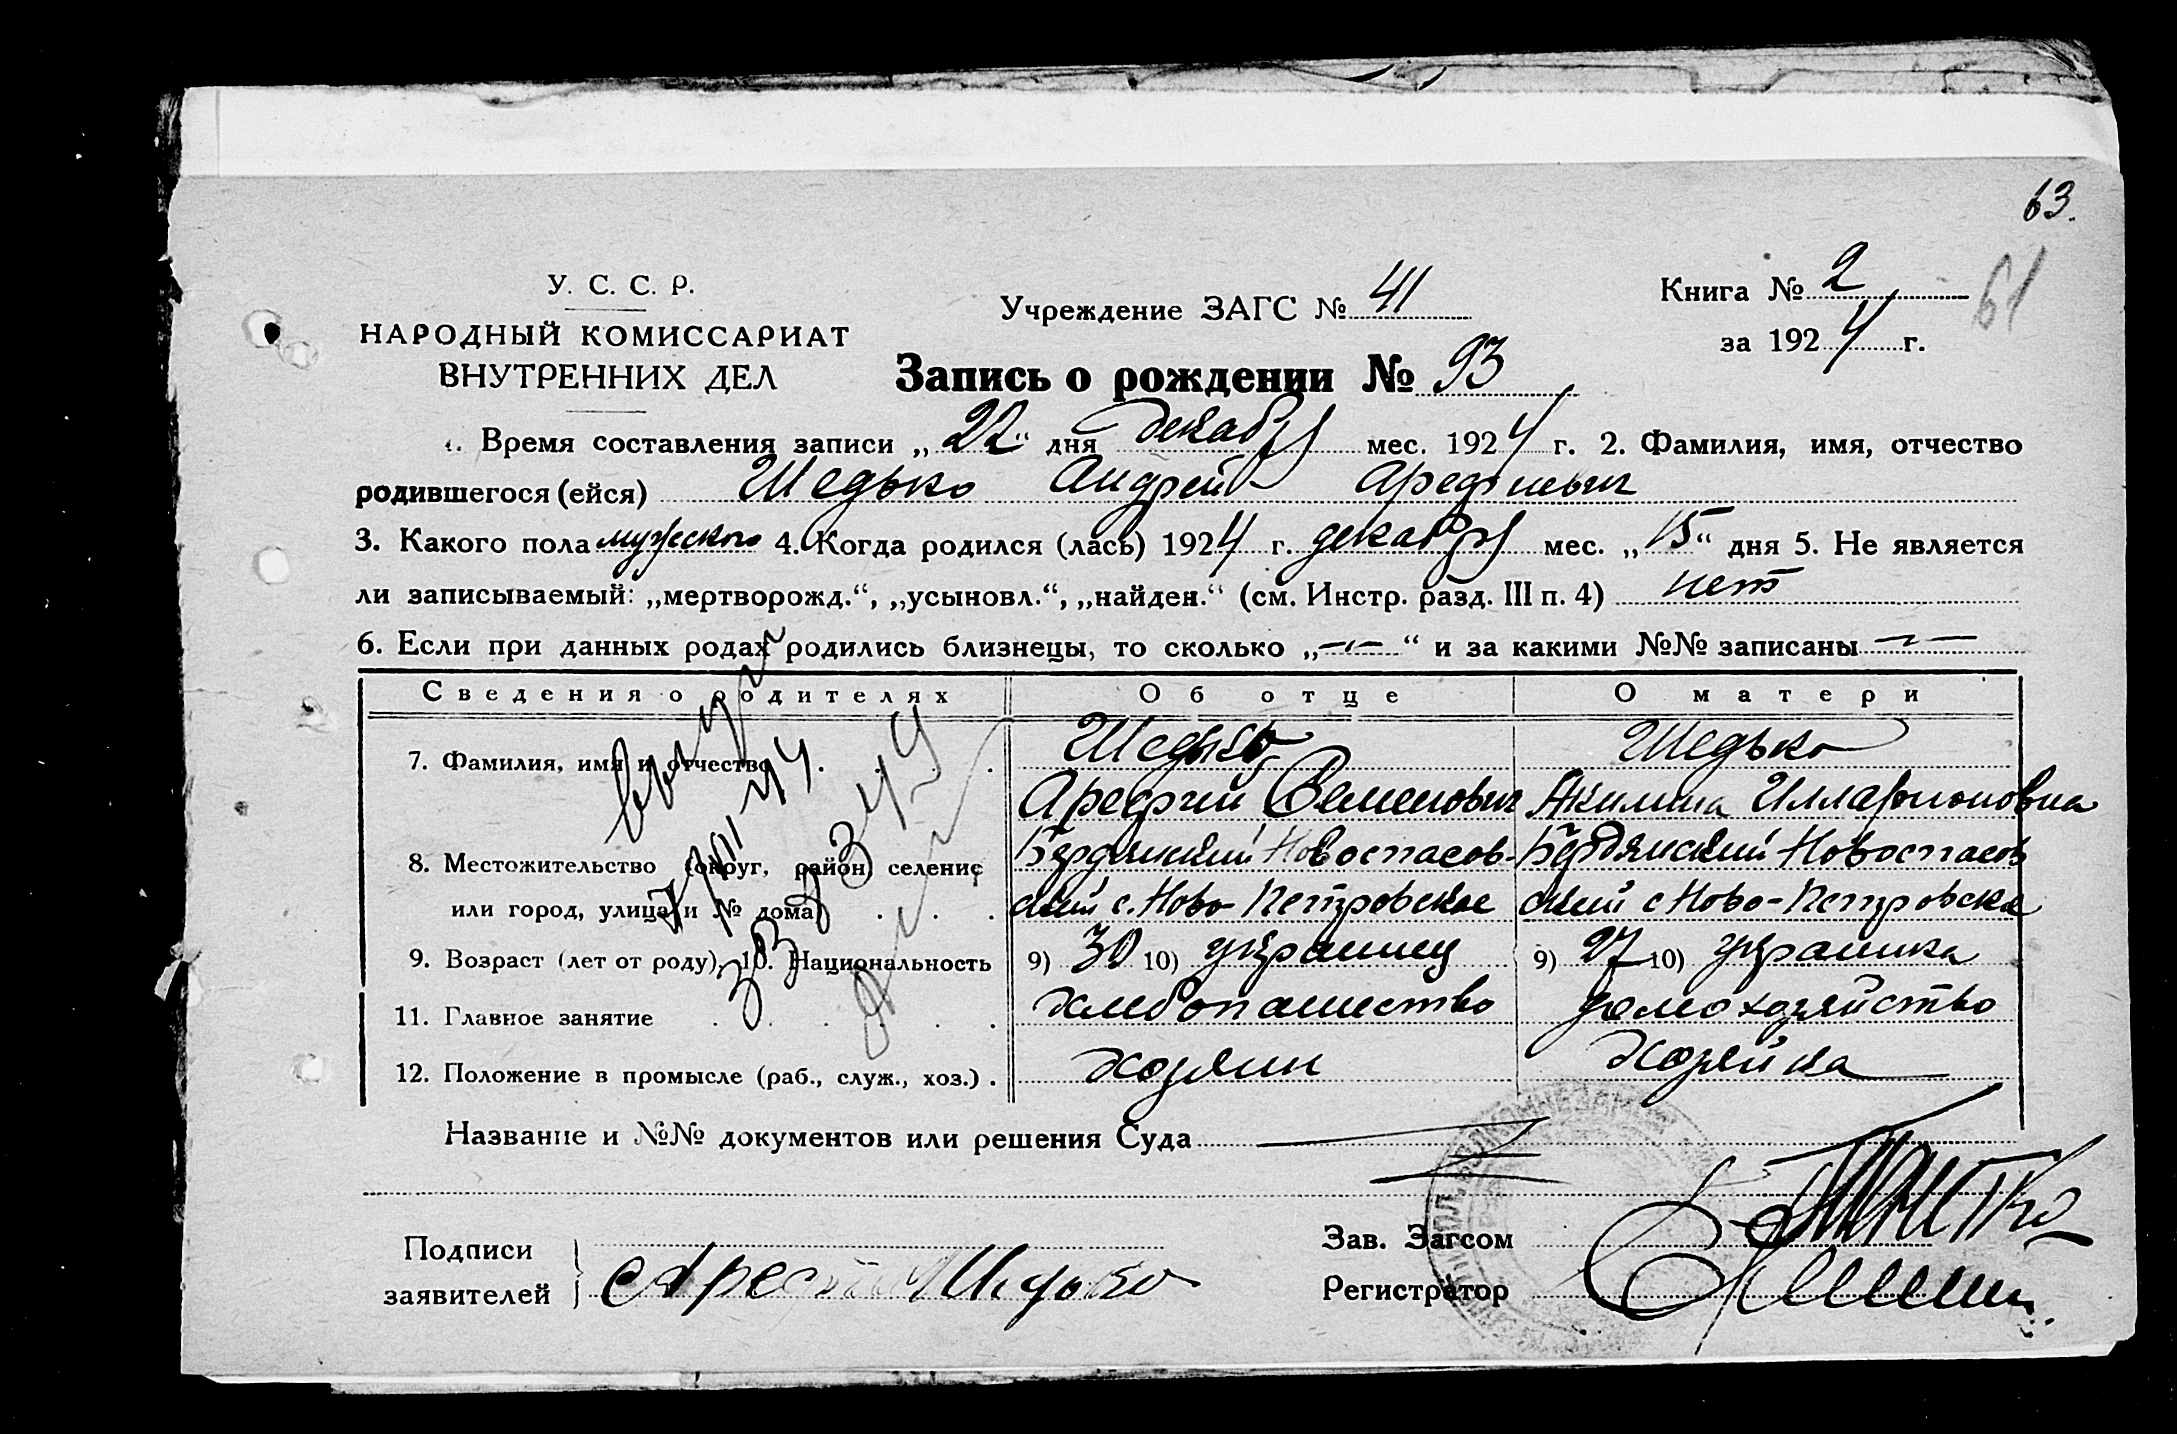 63.
У. С. С. Р.
НАРОДНЫЙ КОМИССАРИАТ
ВНУТРЕННИХ ДЕЛ
Учреждение ЗАГС № 41
Книга № 2
61
за 1924 г.
Запись о рождении № 93
1. Время составления записи „22“ дня декабря мес. 1924 г. 2. Фамилия, имя, отчество
родившегося (ейся) Шедько Андрей Арефиевич
3. Какого пола мужеского 4. Когда родился (лась) 1924 г. декабря мес. „15“ дня 5. Не является
ли записываемый: „мертворожд.“, „усыновл.“, „найден.“ (см. Инстр. разд. III п. 4) нет
6. Если при данных родах родились близнецы, то сколько „—“ и за какими №№ записаны —
Сведения о родителях Об отце О матери
7. Фамилия, имя и отчество Шедько Шедько
Арефий Семенович Акилина Илларионовна
8. Местожительство (округ, район, селение Бердянский Новоспасов- Бердянский Новоспасов
или город, улица и № дома) ский с. Ново-Петровское ский с Ново-Петровске
9. Возраст (лет от роду), 10. Национальность 9) 30 10) украинец 9) 27 10) украинка
11. Главное занятие хлебопашество домохозяйство
12. Положение в промысле (раб., служ., хоз.) хозяин хозяйка
Название и №№ документов или решения Суда
Зав. Загсом
Подписи
заявителей Арефий Шедько
Регистратор